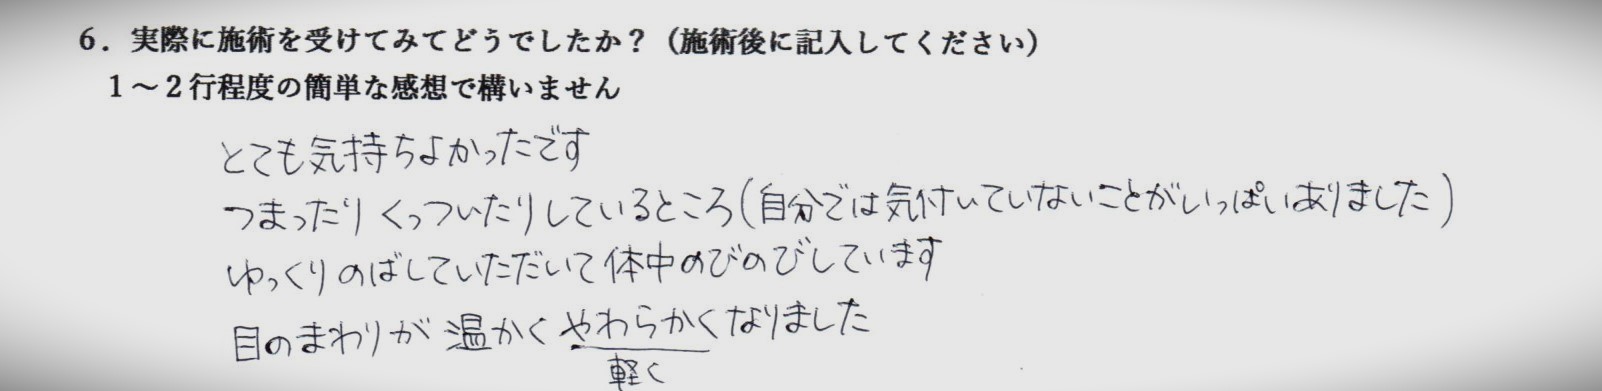 6．実際に施術を受けてみてどうでしたか？（施術後に記入してください）
1～2行程度の簡単な感想で構いません
とても気持ちよかったです
つまったりくっついたりしているところ(自分では気付いていないことがいっぱいありました)
ゆっくりのばしていただいて体中のびのびしています
目のまわりが温かくやわらかくなりました
軽く